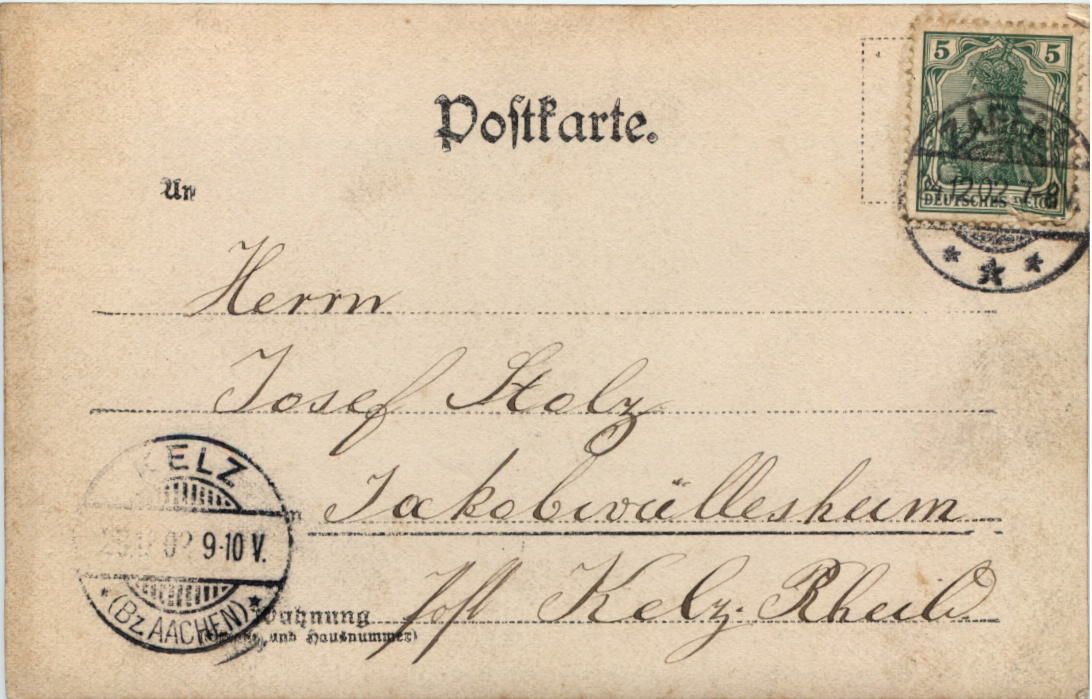 Postkarte.
5 5
DEUTSCHES REICH
12.02. 7-8 V.
An
Herrn
Josef Stolz
in Jakobwüllesheim
Post Kelz. Rheld.
KELZ
02 9-10 V.
(Bz. AACHEN)
Wohnung
(Straße und Hausnummer)